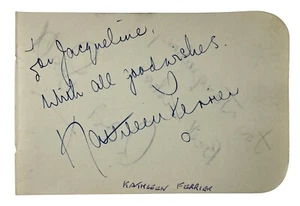 For Jacqueline.
With all good wishes.
Kathleen Ferrier
KATHLEEN FERRIER